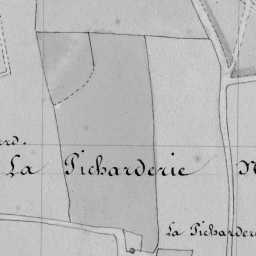 La Picharderie
La Picharderie